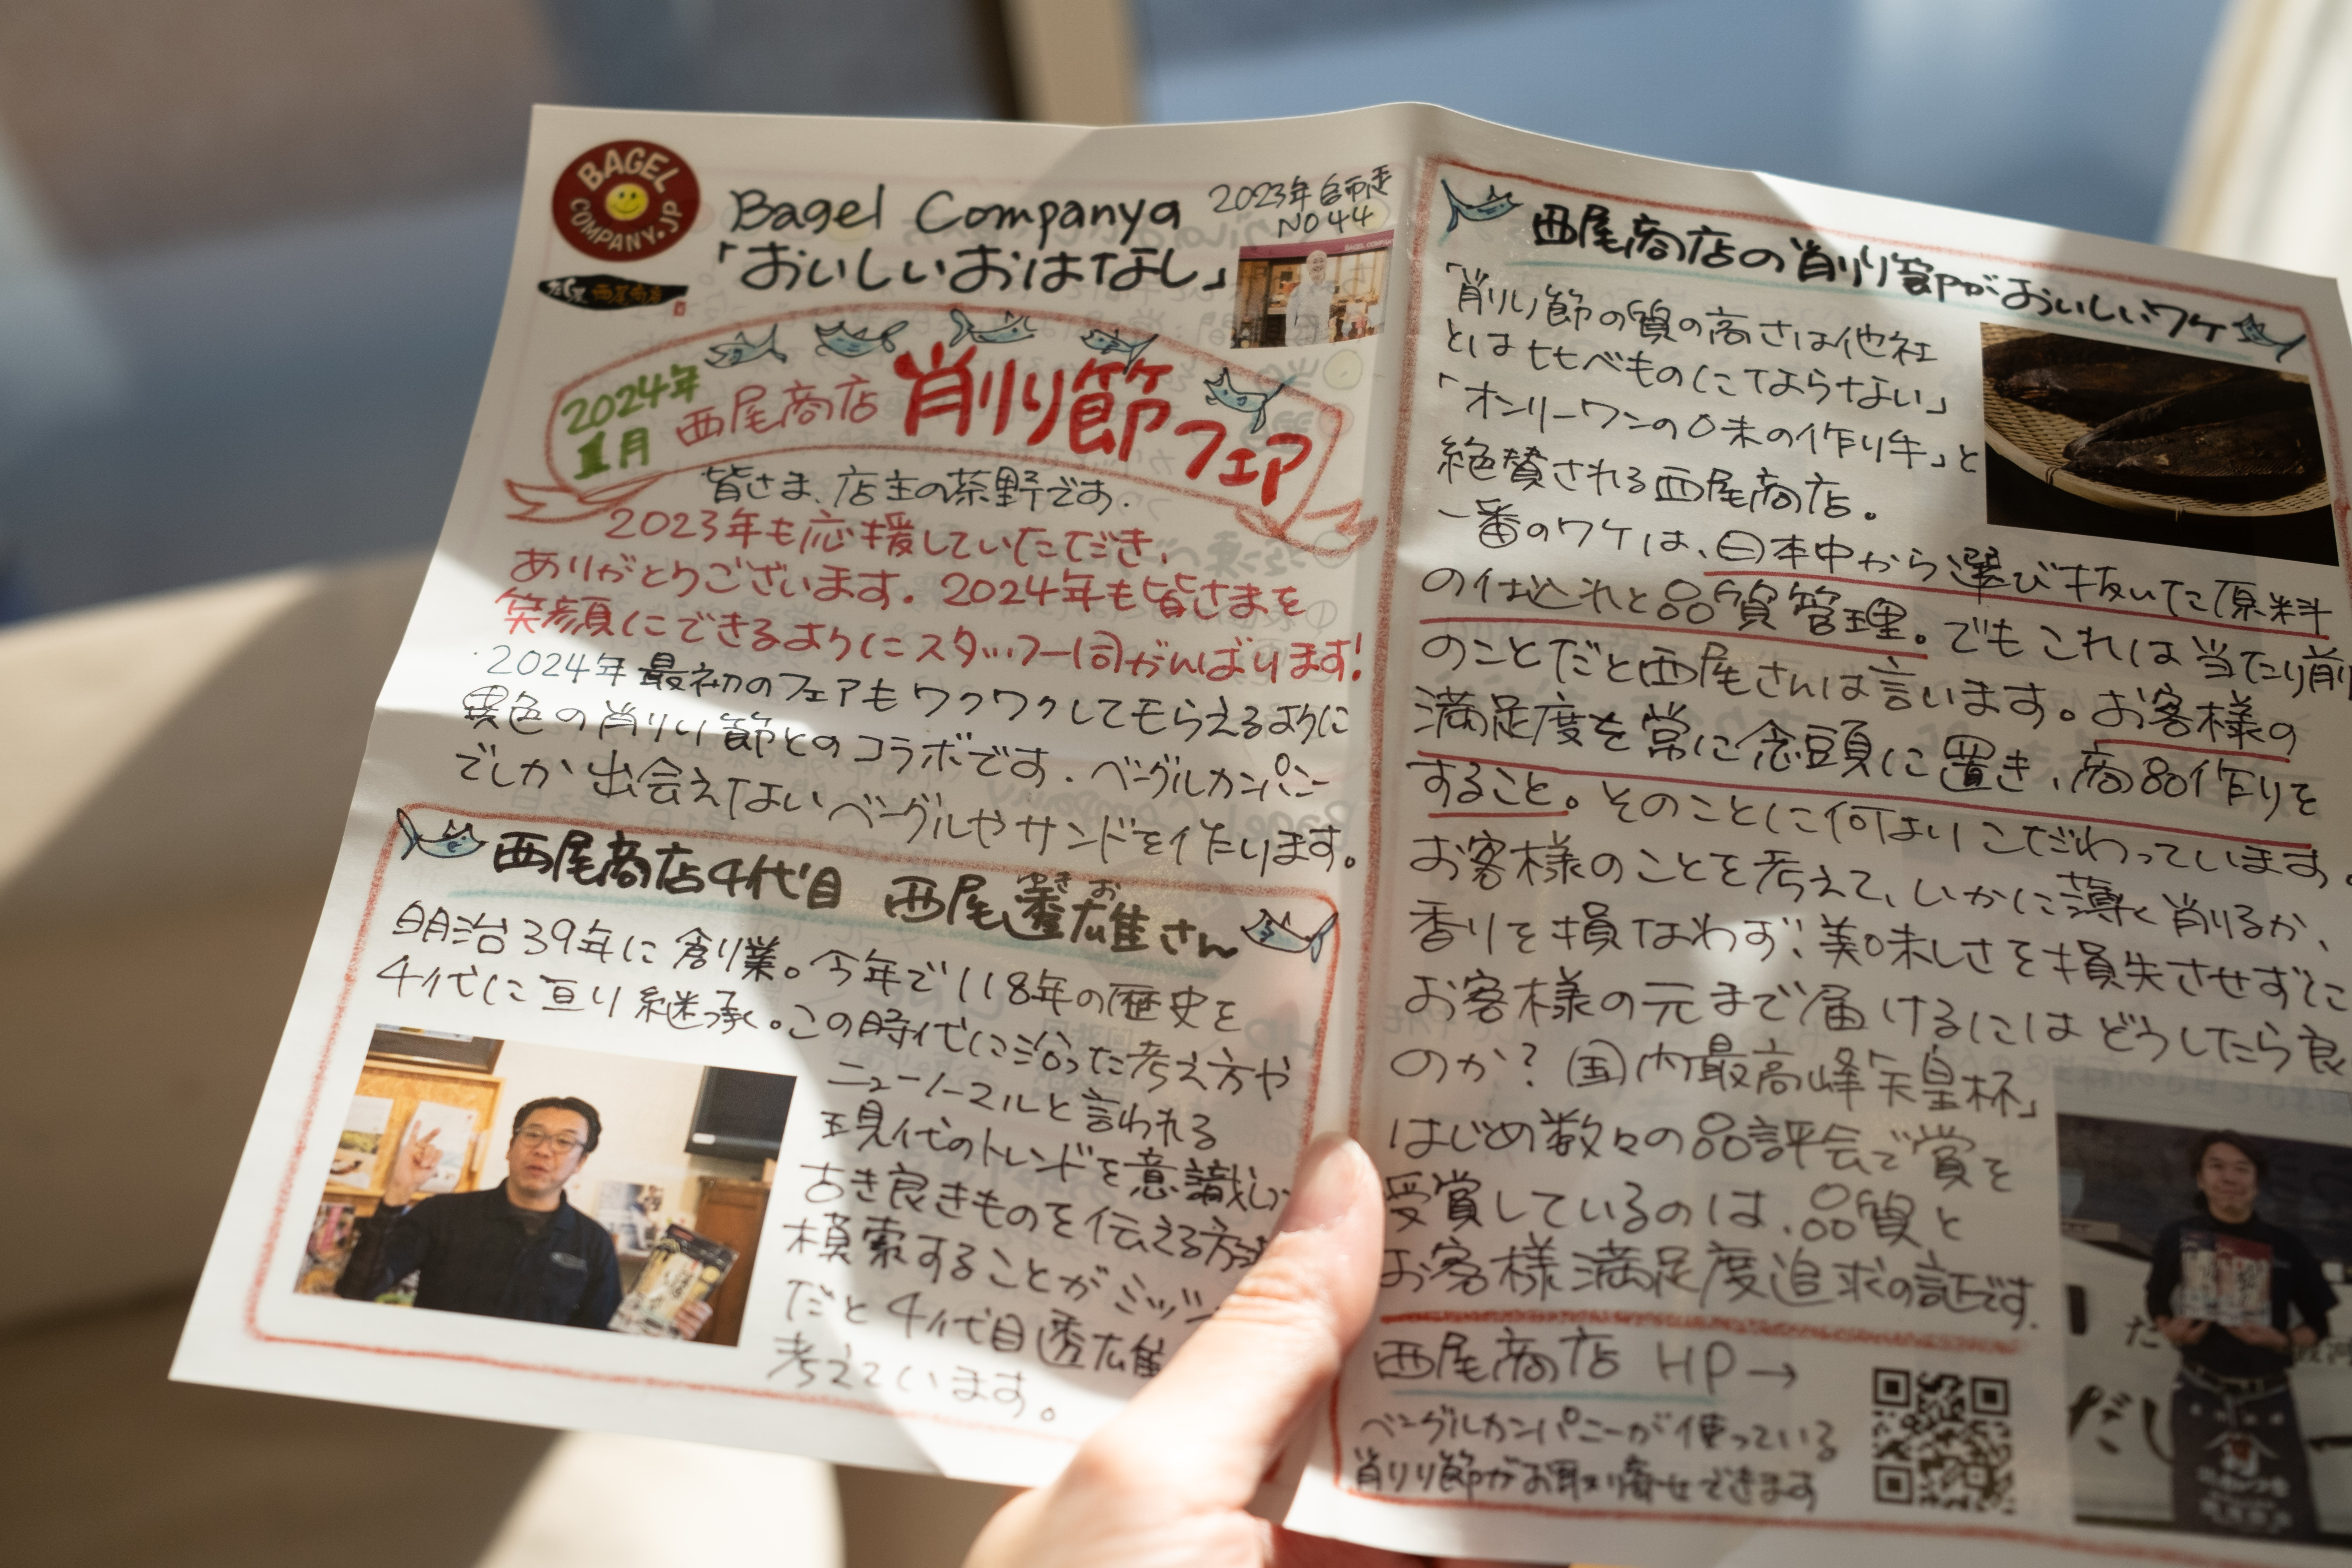 BAGEL
COMPANY.JP
西尾商店
Bagel Companyの
「おいしいおはなし」
2023年 師走
NO 44
2024年
1月
西尾商店 削り節フェア
皆さま、店主の茶野です.
2023年も応援していただき、
ありがとうございます. 2024年も皆さまを
笑顔にできるようにスタッフ一同がんばります!
2024年最初のフェアもワクワクしてもらえるように
異色の削り節とのコラボです. ベーグルカンパニー
でしか出会えないベーグルやサンドを作ります。
西尾商店4代目 西尾 雄さん
きお
明治39年に創業。今年で118年の歴史を
4代に亘り継承。この時代に沿った考え方や
ニューノーマルと言われる
現代のトレンドを意識し
古き良きものを伝える方
模索することがミッシ
だと4代目 雄
考えています。
西尾商店の削り節がおいしいワケ
「削り節の質の高さは他社
とは比べものにてならない」
「オンリーワンの味の作り手」と
絶賛される西尾商店。
一番のワケは、日本中から選び抜いた原料
の仕込れと品質管理。でもこれは当たり前
のことだと西尾さんは言います。お客様の
満足度を常に念頭に置き、商品作りを
すること。そのことに何よりこだわっています。
お客様のことを考えて、いかに薄く削るか、
香りを損なわず、美味しさを損失させずに
お客様の元まで届けるにはどうしたら良
のか? 国内最高峰「天皇杯」
はじめ数々の品評会で賞を
受賞しているのは、品質と
お客様満足度追求の証です.
西尾商店 HP→
ベーグルカンパニーが使っている
削り節がお取り寄せできます
だし